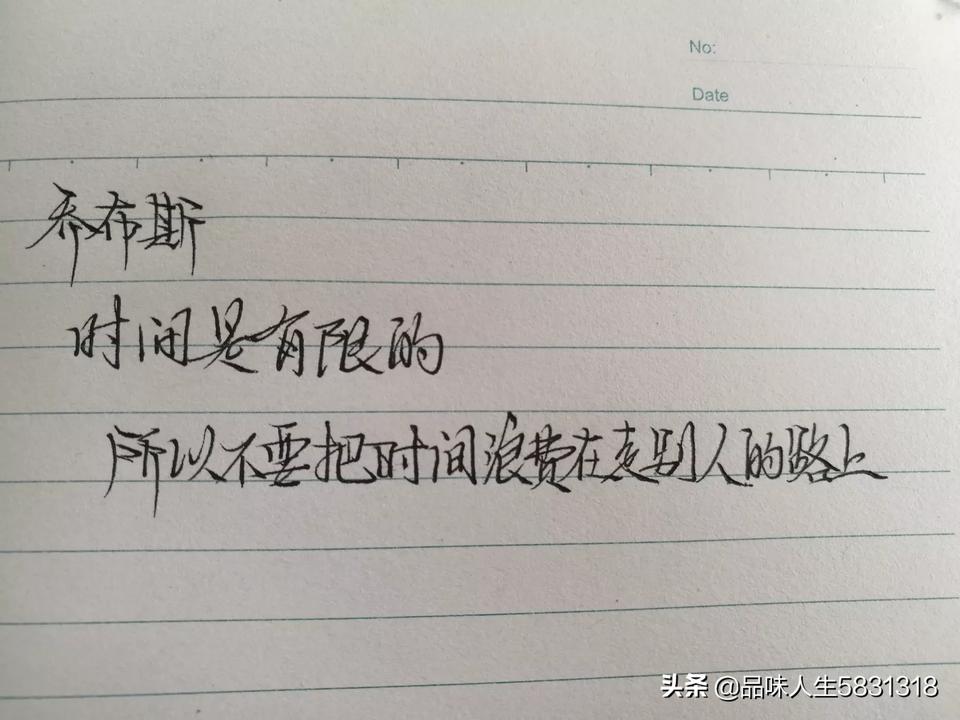 No:
Date
乔布斯
时间是有限的
所以不要把时间浪费在走别人的路上
头条 @品味人生5831318